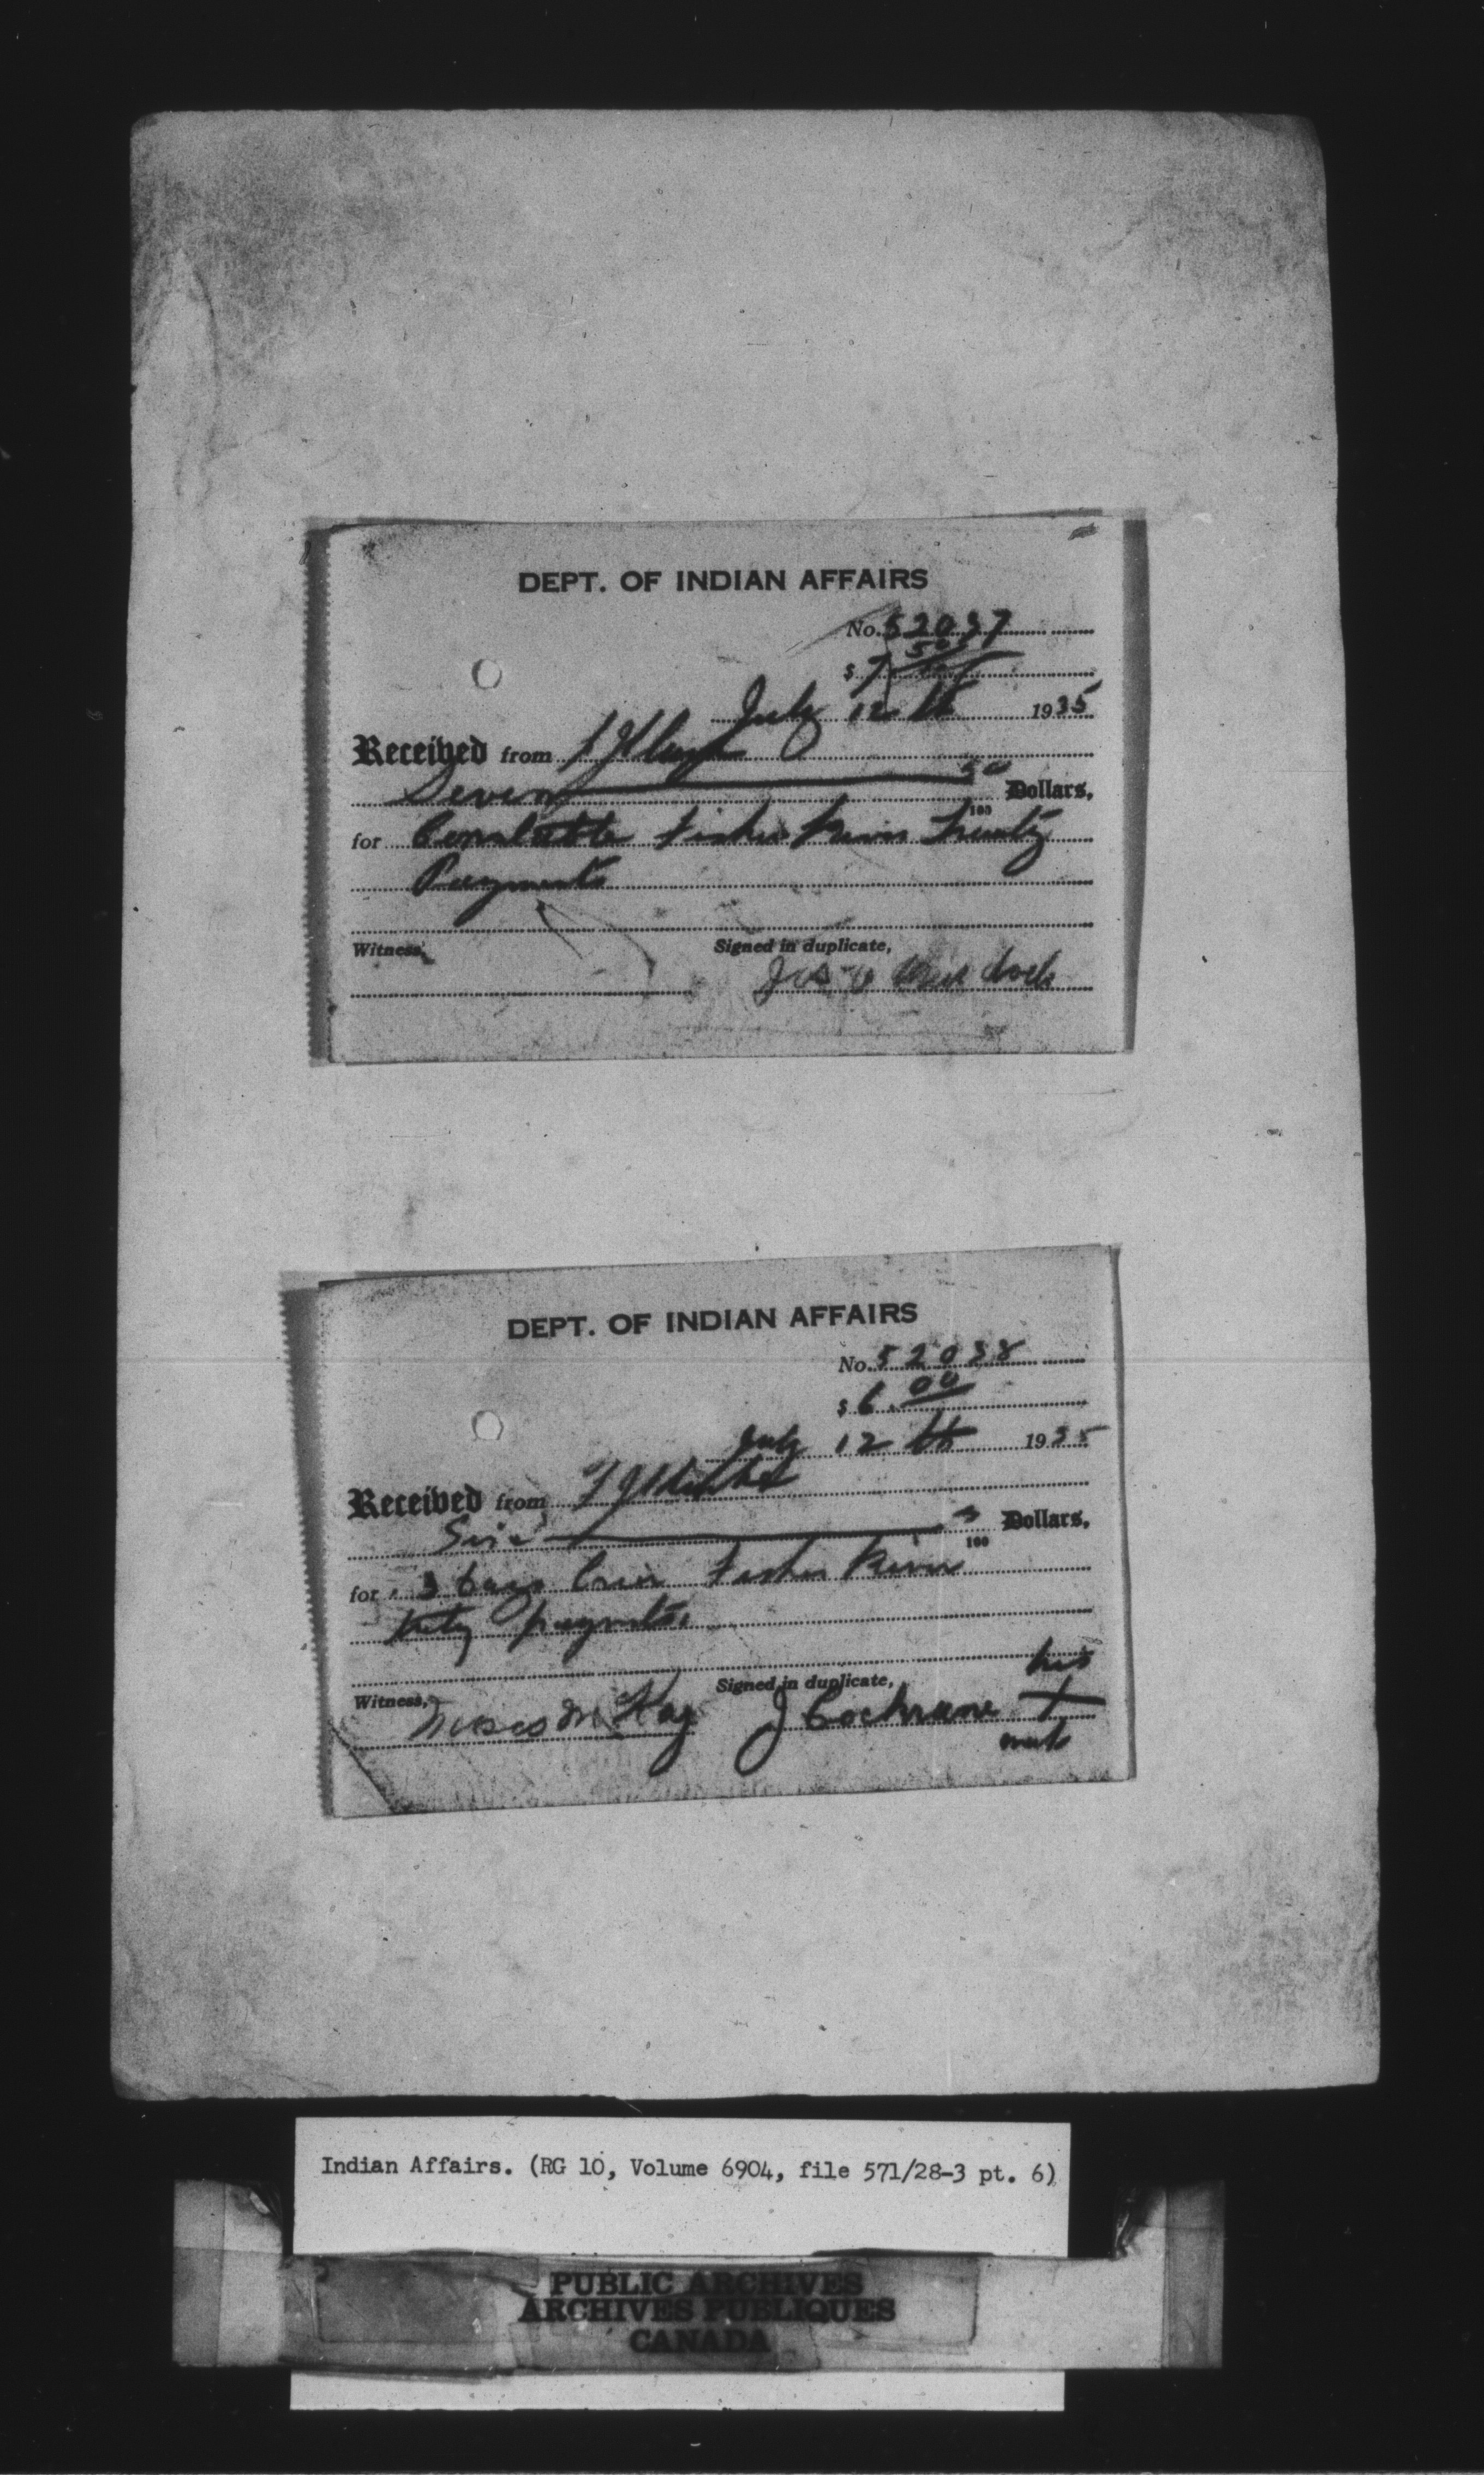 DEPT. OF INDIAN AFFAIRS
No. 52037
$ 7 50/100
July 12th 1935
Received from
Seven 50/100 Dollars,
for Constable Fisher River Treaty
Payments
Witness,
Signed in duplicate,
DEPT. OF INDIAN AFFAIRS
No. 52038
$ 6.00
July 12th 1935
Received from
Six /100 Dollars,
for 3 Days Crier Fisher River
payments
his
Witness,
Signed in duplicate,
Moses McKay
J Cochrane X
mark
Indian Affairs. (RG 10, Volume 6904, file 571/28-3 pt. 6)
PUBLIC ARCHIVES
ARCHIVES PUBLIQUES
CANADA